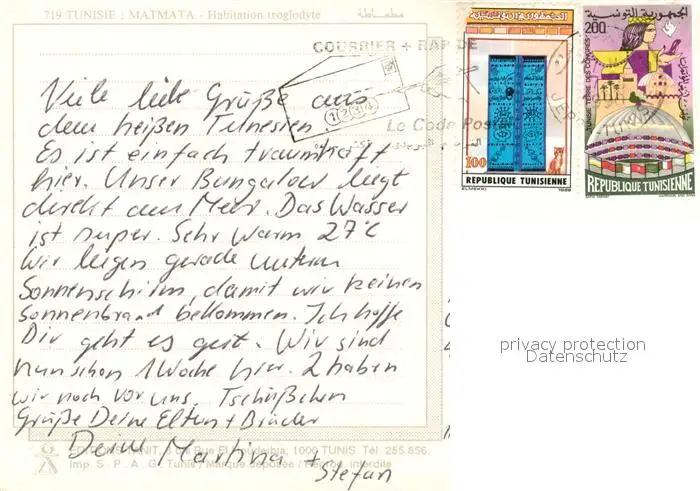 719 TUNISIE : MATMATA - Habitation troglodyte
COURRIER + RAPIDE
1 2 3 4
Le Code Postal
الجمهورية التونسية
100
REPUBLIQUE TUNISIENNE
1988
الجمهورية التونسية
200
TUNISIE TERRE DES CONGRES
REPUBLIQUE TUNISIENNE
Viele liebe Grüße aus
dem heißen Tunesien.
Es ist einfach traumhaft
hier. Unser Bungalow liegt
direkt am Meer. Das Wasser
ist super. Sehr warm 27°C
Wir liegen gerade unterm
Sonnenschirm, damit wir keinen
Sonnenbrand bekommen. Ich hoffe
Dir geht es gut. Wir sind
nun schon 1 Woche hier. 2 haben
wir noch vor uns. Tschüßchen
Grüße Deine Eltern + Brüder
Deine Martina
+ Stefan
1000 TUNIS Tél 255.856.
Imp. S. P. A. G. Tunis / Marque déposée / Reprod. interdite
privacy protection
Datenschutz